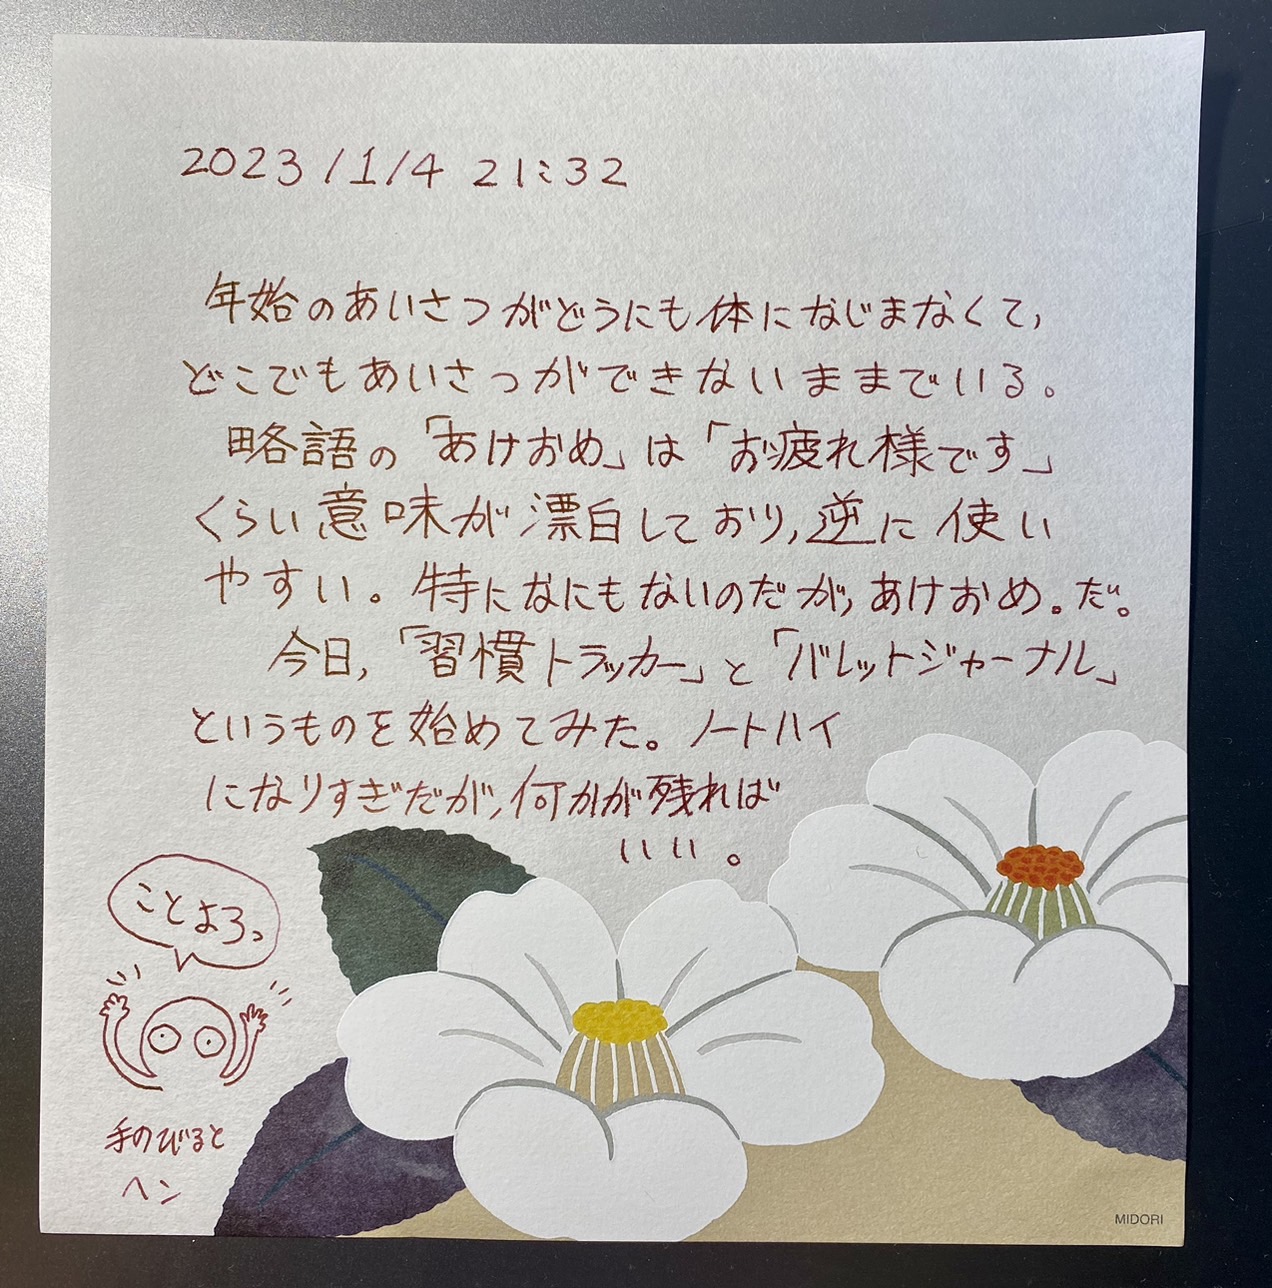 2023/1/4 21:32
年始のあいさつがどうにも体になじまなくて,
どこでもあいさつができないままでいる。
略語の「あけおめ」は「お疲れ様です」
くらい意味が漂白しており,逆に使い
やすい。特になにもないのだが,あけおめ。だ。
今日,「習慣トラッカー」と「バレットジャーナル」
というものを始めてみた。ノートハイ
になりすぎだが,何かが残れば
いい。
ことよろっ
手のびると
ヘン
MIDORI